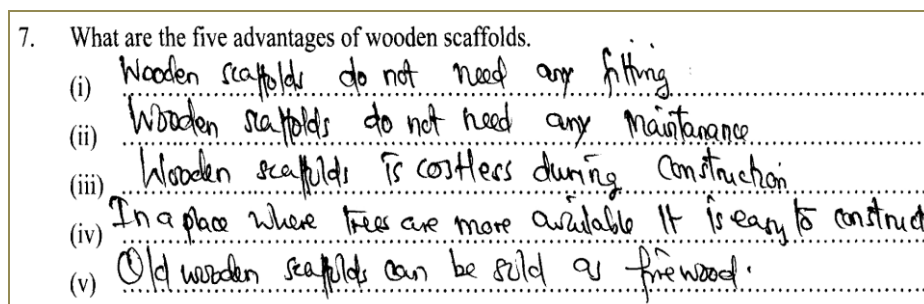 7. What are the five advantages of wooden scaffolds.
(i) Wooden scaffolds do not need any fitting
(ii) Wooden scaffolds do not need any maintanance
(iii) Wooden scaffolds is costless during construction
(iv) In a place where trees are more available It is easy to construct
(v) Old wooden scaffolds can be sold as firewood.